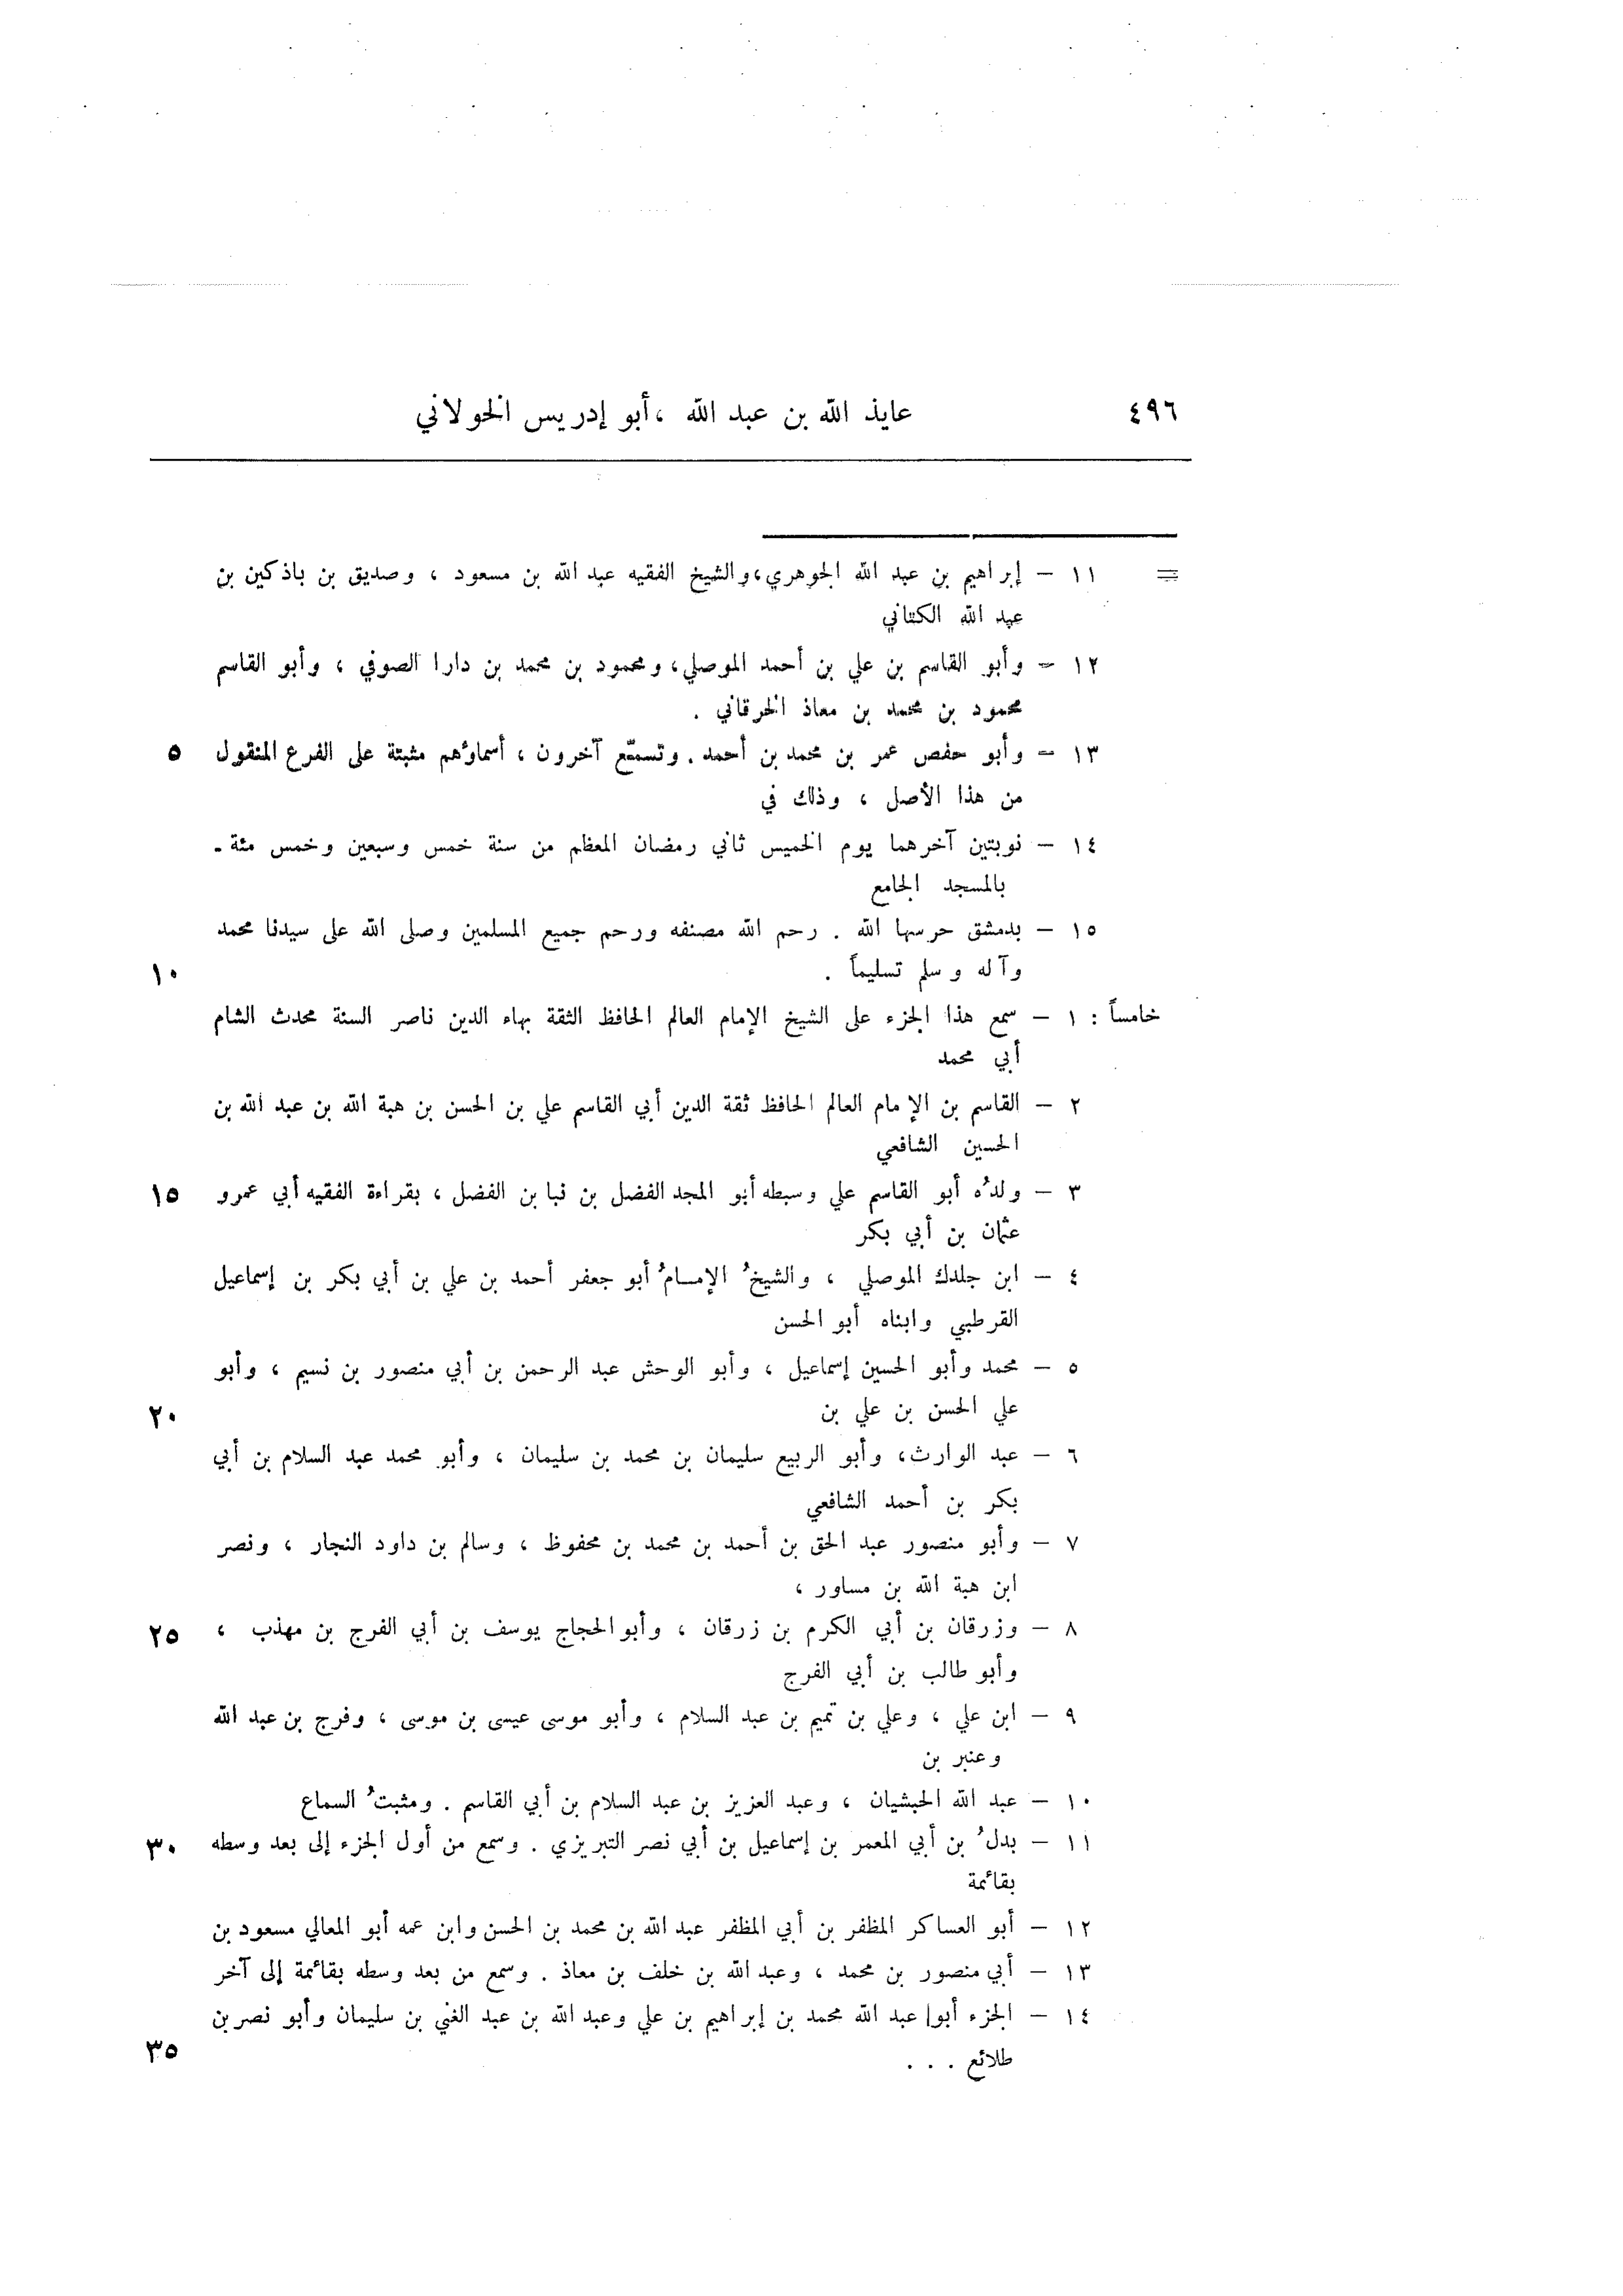 ٤٩٦ عايذ الله بن عبد الله ، أبو إدريس الخولاني
= ١١ – إبراهيم بن عبد الله الجوهري، والشيخ الفقيه عبد الله بن مسعود ، وصديق بن باذكين بن
عبد الله الكتاني
١٢ – وأبو القاسم بن علي بن أحمد الموصلي، ومحمود بن محمد بن دارا الصوفي ، وأبو القاسم
محمود بن محمد بن معاذ الخرقاني .
١٣ – وأبو حفص عمر بن محمد بن أحمد . وتسمّع آخرون ، أسماؤهم مثبتة على الفرع المنقول ٥
من هذا الأصل ، وذلك في
١٤ – نوبتين آخرهما يوم الخميس ثاني رمضان المعظم من سنة خمس وسبعين وخمس مئة ـ
بالمسجد الجامع
١٥ – بدمشق حرسها الله . رحم الله مصنفه ورحم جميع المسلمين وصلى الله على سيدنا محمد
وآله وسلم تسليماً . ١٠
خامساً : ١ – سمع هذا الجزء على الشيخ الإمام العالم الحافظ الثقة بهاء الدين ناصر السنة محدث الشام
أبي محمد
٢ – القاسم بن الإمام العالم الحافظ ثقة الدين أبي القاسم علي بن الحسن بن هبة الله بن عبد الله بن
الحسين الشافعي
٣ – ولدُه أبو القاسم علي وسبطه أبو المجد الفضل بن نبا بن الفضل ، بقراءة الفقيه أبي عمرو ١٥
عثمان بن أبي بكر
٤ – ابن جلدك الموصلي ، والشيخُ الإمامُ أبو جعفر أحمد بن علي بن أبي بكر بن إسماعيل
القرطبي وابناه أبو الحسن
٥ – محمد وأبو الحسين إسماعيل ، وأبو الوحش عبد الرحمن بن أبي منصور بن نسيم ، وأبو
علي الحسن بن علي بن ٢٠
٦ – عبد الوارث، وأبو الربيع سليمان بن محمد بن سليمان ، وأبو محمد عبد السلام بن أبي
بكر بن أحمد الشافعي
٧ – وأبو منصور عبد الحق بن أحمد بن محمد بن محفوظ ، وسالم بن داود النجار ، ونصر
ابن هبة الله بن مساور ،
٨ – وزرقان بن أبي الكرم بن زرقان ، وأبو الحجاج يوسف بن أبي الفرج بن مهذب ، ٢٥
وأبو طالب بن أبي الفرج
٩ – ابن علي ، وعلي بن تميم بن عبد السلام ، وأبو موسى عيسى بن موسى ، وفرج بن عبد الله
وعنبر بن
١٠ – عبد الله الحبشيان ، وعبد العزيز بن عبد السلام بن أبي القاسم . ومثبتُ السماع
١١ – بدلُ بن أبي المعمر بن إسماعيل بن أبي نصر التبريزي . وسمع من أول الجزء إلى بعد وسطه ٣٠
بقائمة
١٢ – أبو العساكر المظفر بن أبي المظفر عبد الله بن محمد بن الحسن وابن عمه أبو المعالي مسعود بن
١٣ – أبي منصور بن محمد ، وعبد الله بن خلف بن معاذ . وسمع من بعد وسطه بقائمة إلى آخر
١٤ – الجزء أبوا عبد الله محمد بن إبراهيم بن علي وعبد الله بن عبد الغني بن سليمان وأبو نصر بن
طلائع . . . ٣٥